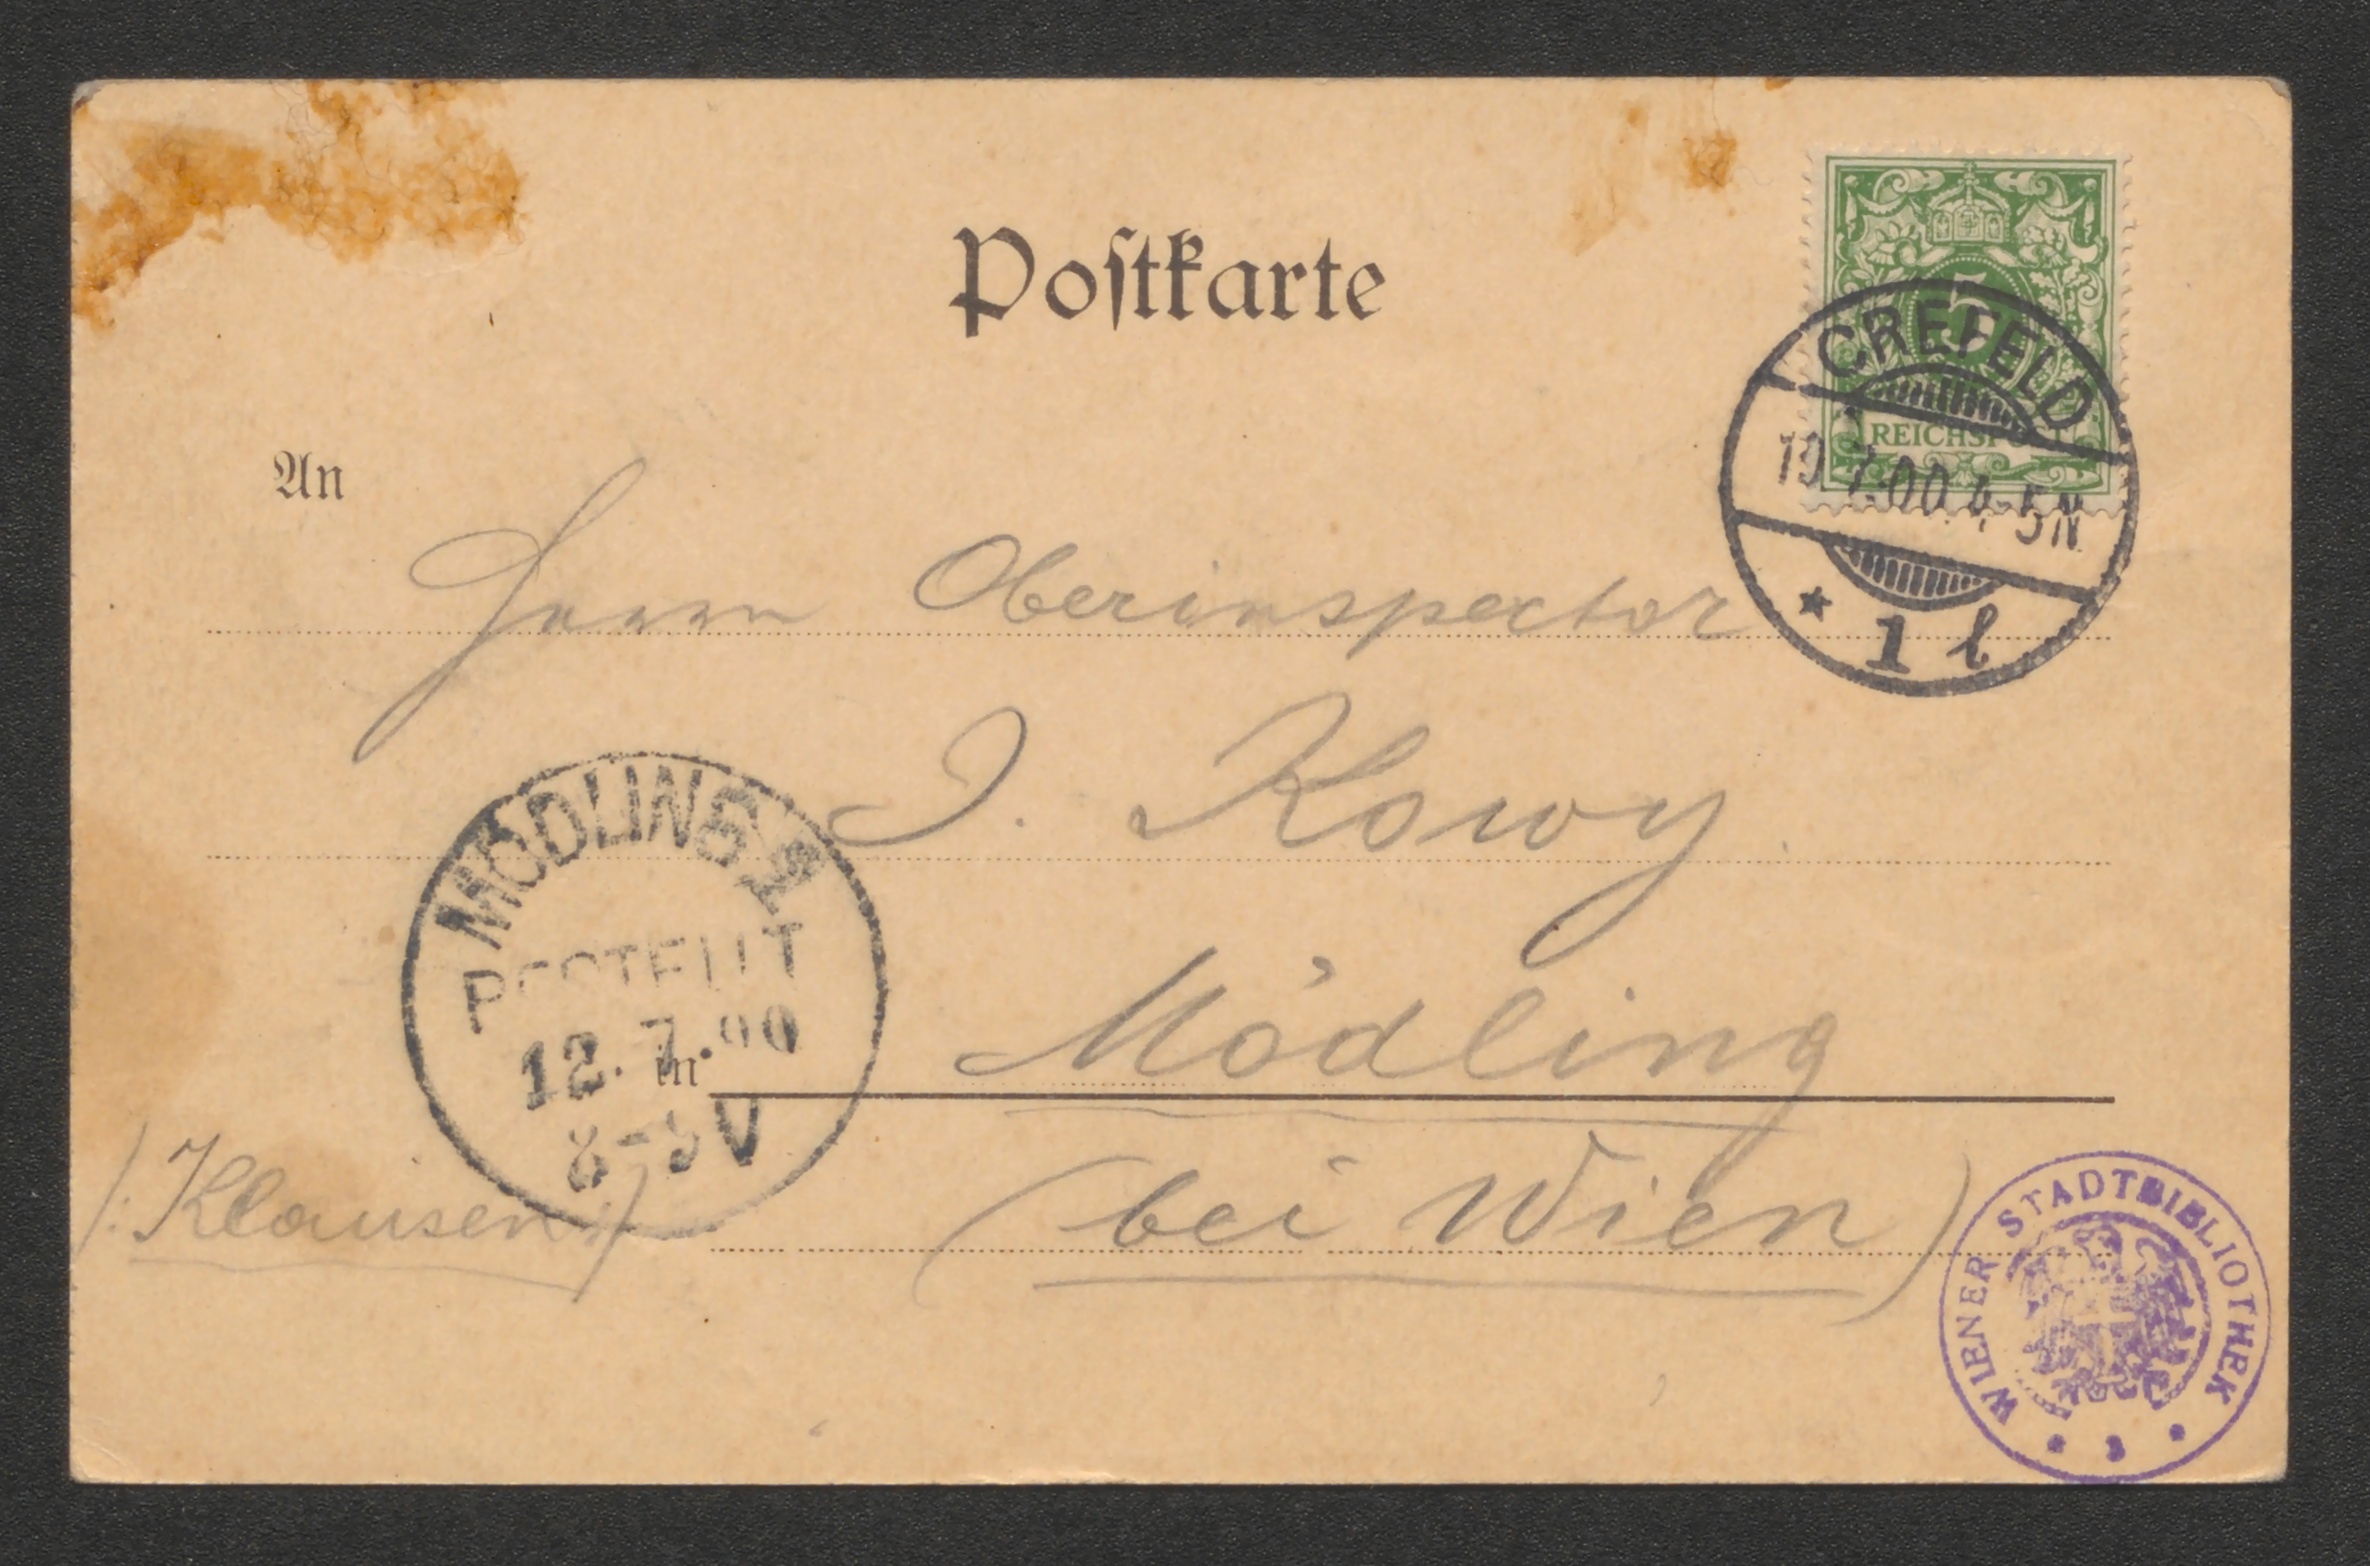 Postkarte
5
REICHSPOST
CREFELD
10.7.00.4-5N
* 1 l
An
Herrn Oberinspector
J. Kowy
MÖDLING
BESTELLT
12.7.00
8-9V
in
Mödling
/:Klausen:/
(bei Wien)
WIENER STADTBIBLIOTHEK